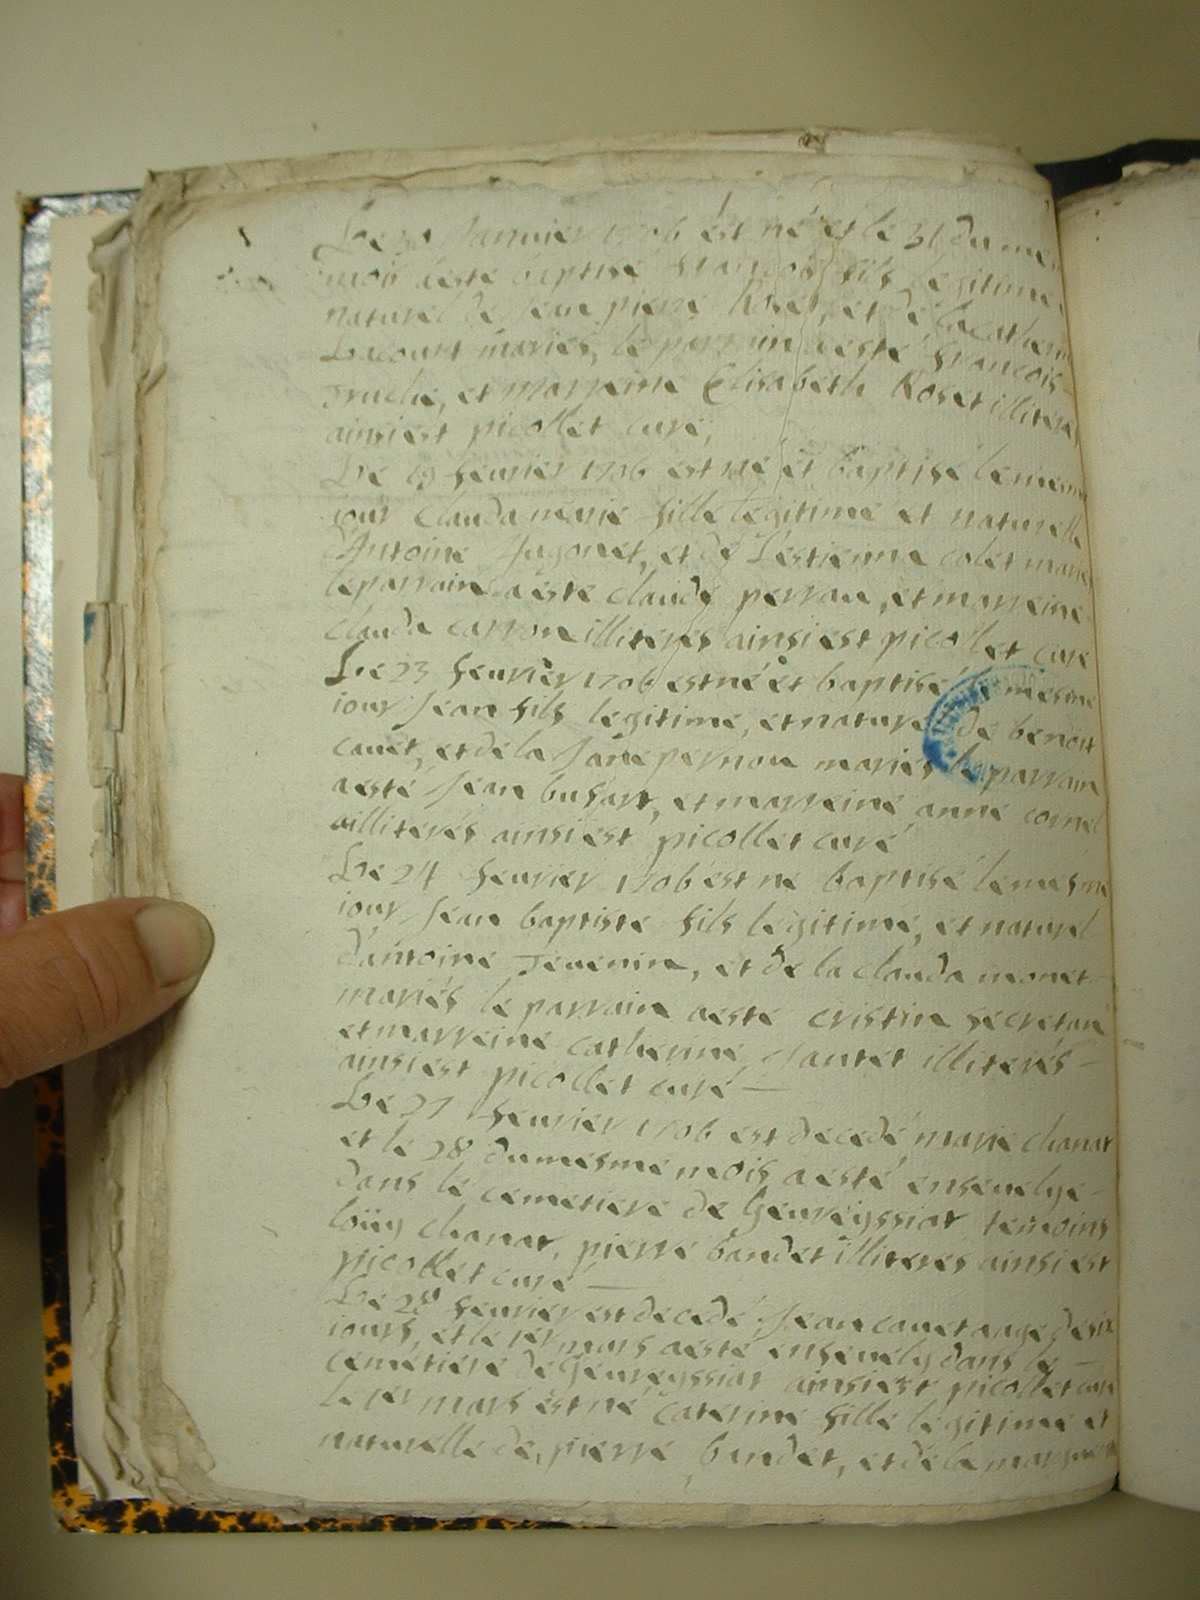 Le 30 Januier 1706 est né et le 31 du me
mois aesté baptisé francois fils legitime
naturel de Jean pierre Roset, et de la cathem
Lacourt mariés, le parrain aesté francois
truche, et marreine Elisabeth Roset illiteré
ainsi est picollet curé,
Le 19 feurier 1706 est né et baptisé le mem
iour claudamarie fille legitime et naturelle
d'Antoine Jugonet, et de L'estienne colet marié
le parraine aesté claude perrau, et marreine
clauda carrone illiterés ainsi est picollet curé
Le 23 feurier 1706 est né et baptisé le mesme
iour Jean fils legitime, et naturel de benoit
cauet, et de la Jane pernou mariés le parrain
aesté Jean busart, et marreine anne cornel
illiterés ainsi est picollet curé
Le 24 feurier 1706 est ne baptisé le mesme
iour Jean baptiste fils legitime, et naturel
d'antoine Jeuenin, et de la clauda monet
mariés le parrain aesté cristin secretan
et marreine catherine Jantet illiterés –
ainsi est picollet curé —
Le 27 feurier 1706 est decedé marie chanat
et le 28 du mesme mois aesté enseuelye –
dans le cemetiere de Geureyssiat temoins
loüy chanat, pierre bandet illiteres ainsi est
picollet curé —
Le 28 feurier est decedé Jean cauet aagé de six
iours, et le 1er mars aesté enseuely dans le –
cemetiere de Geureyssiat ainsi est picollet curé
le 1er mars est né caterine fille legitime et
naturelle de, pierre bandet, et de la